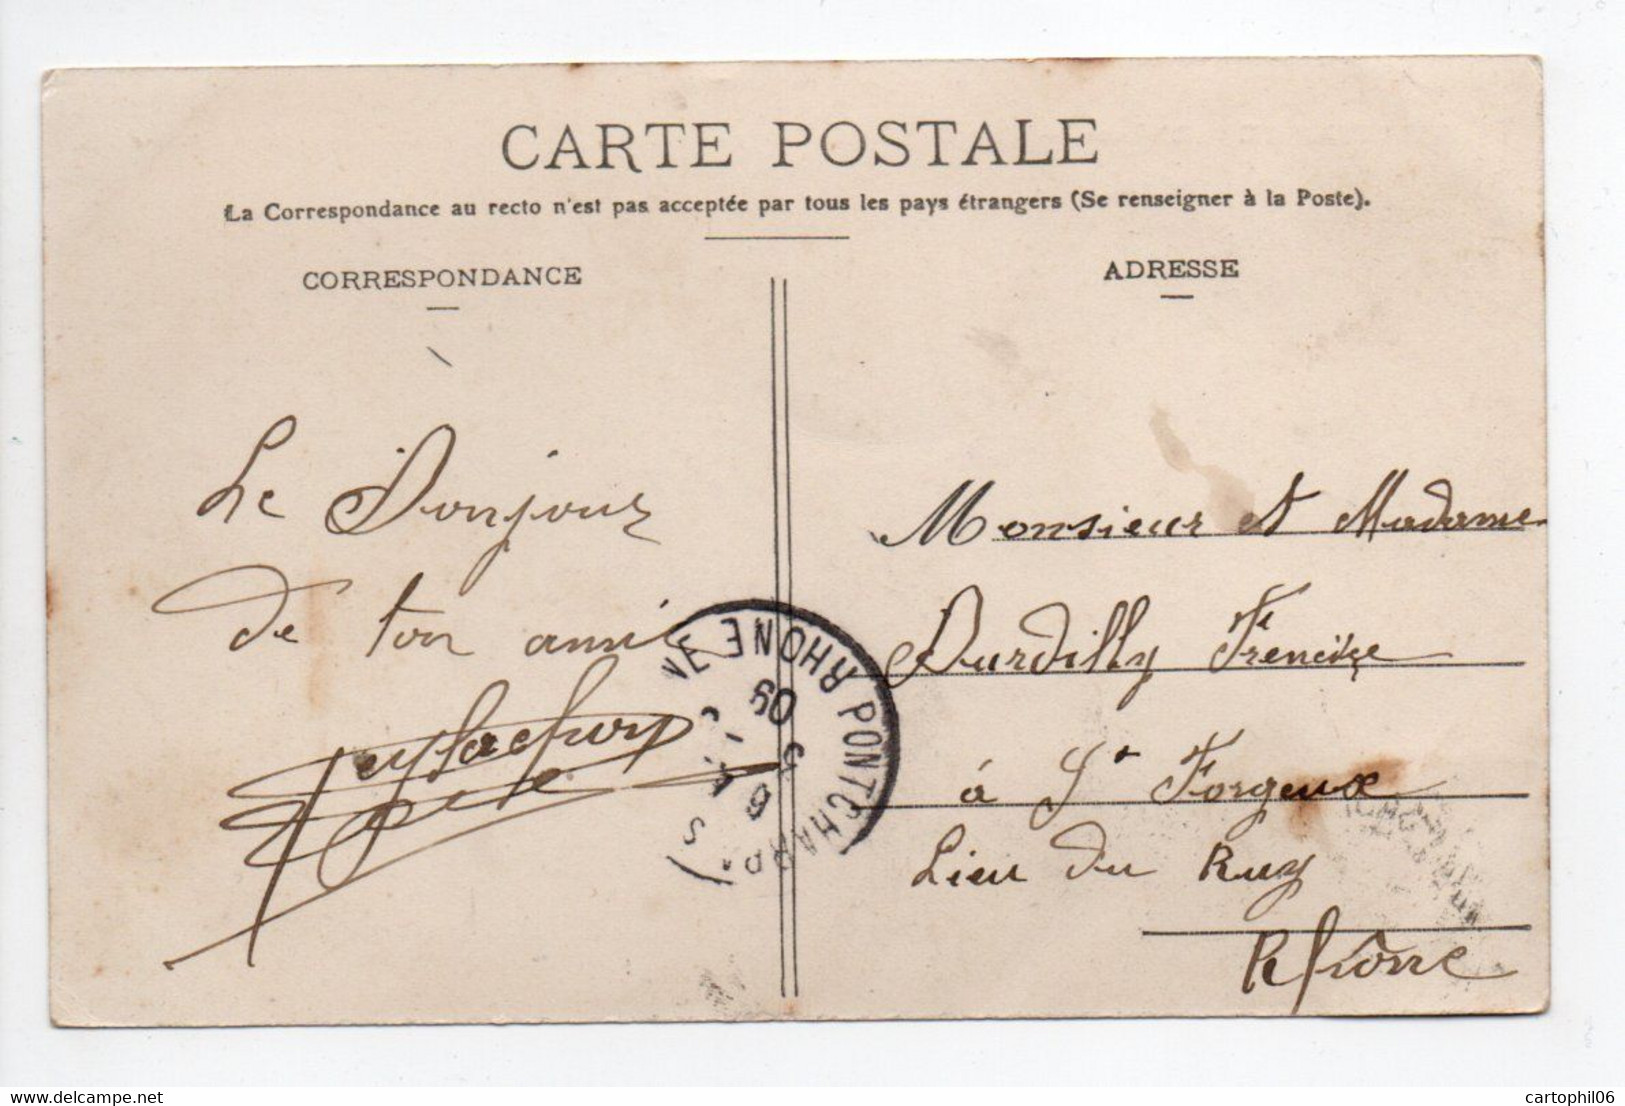 CARTE POSTALE
La Correspondance au recto n'est pas acceptée par tous les pays étrangers (Se renseigner à la Poste).
CORRESPONDANCE
Le Bonjour
de ton ami
ADRESSE
Monsieur et Madame
Durdilly
à St Forgeux
Lieu du Ruy
Rhône
PONTCHARRA
RHONE
6
5
09
cartophil06